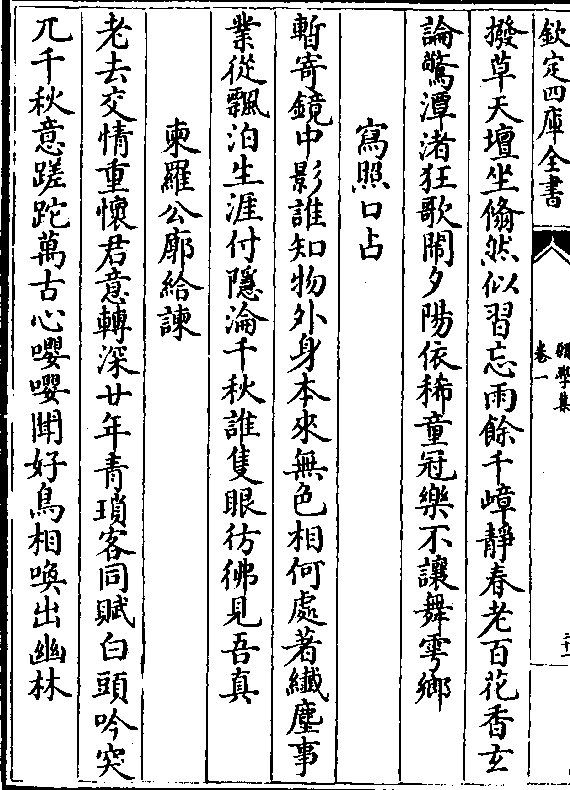 欽定四庫全書
卷一
撥草天壇坐翛然似習忘雨餘千嶂靜春老百花香玄
論驚潭渚狂歌鬧夕陽依稀童冠樂不讓舞雩鄉
寫照口占
暫寄鏡中影誰知物外身本來無色相何處著纖塵事
業從飄泊生涯付隱淪千秋誰隻眼彷彿見吾真
柬羅公廓給諫
老去交情重懷君意轉深廿年青瑣客同賦白頭吟突
兀千秋意蹉跎萬古心嚶嚶聞好鳥相喚出幽林